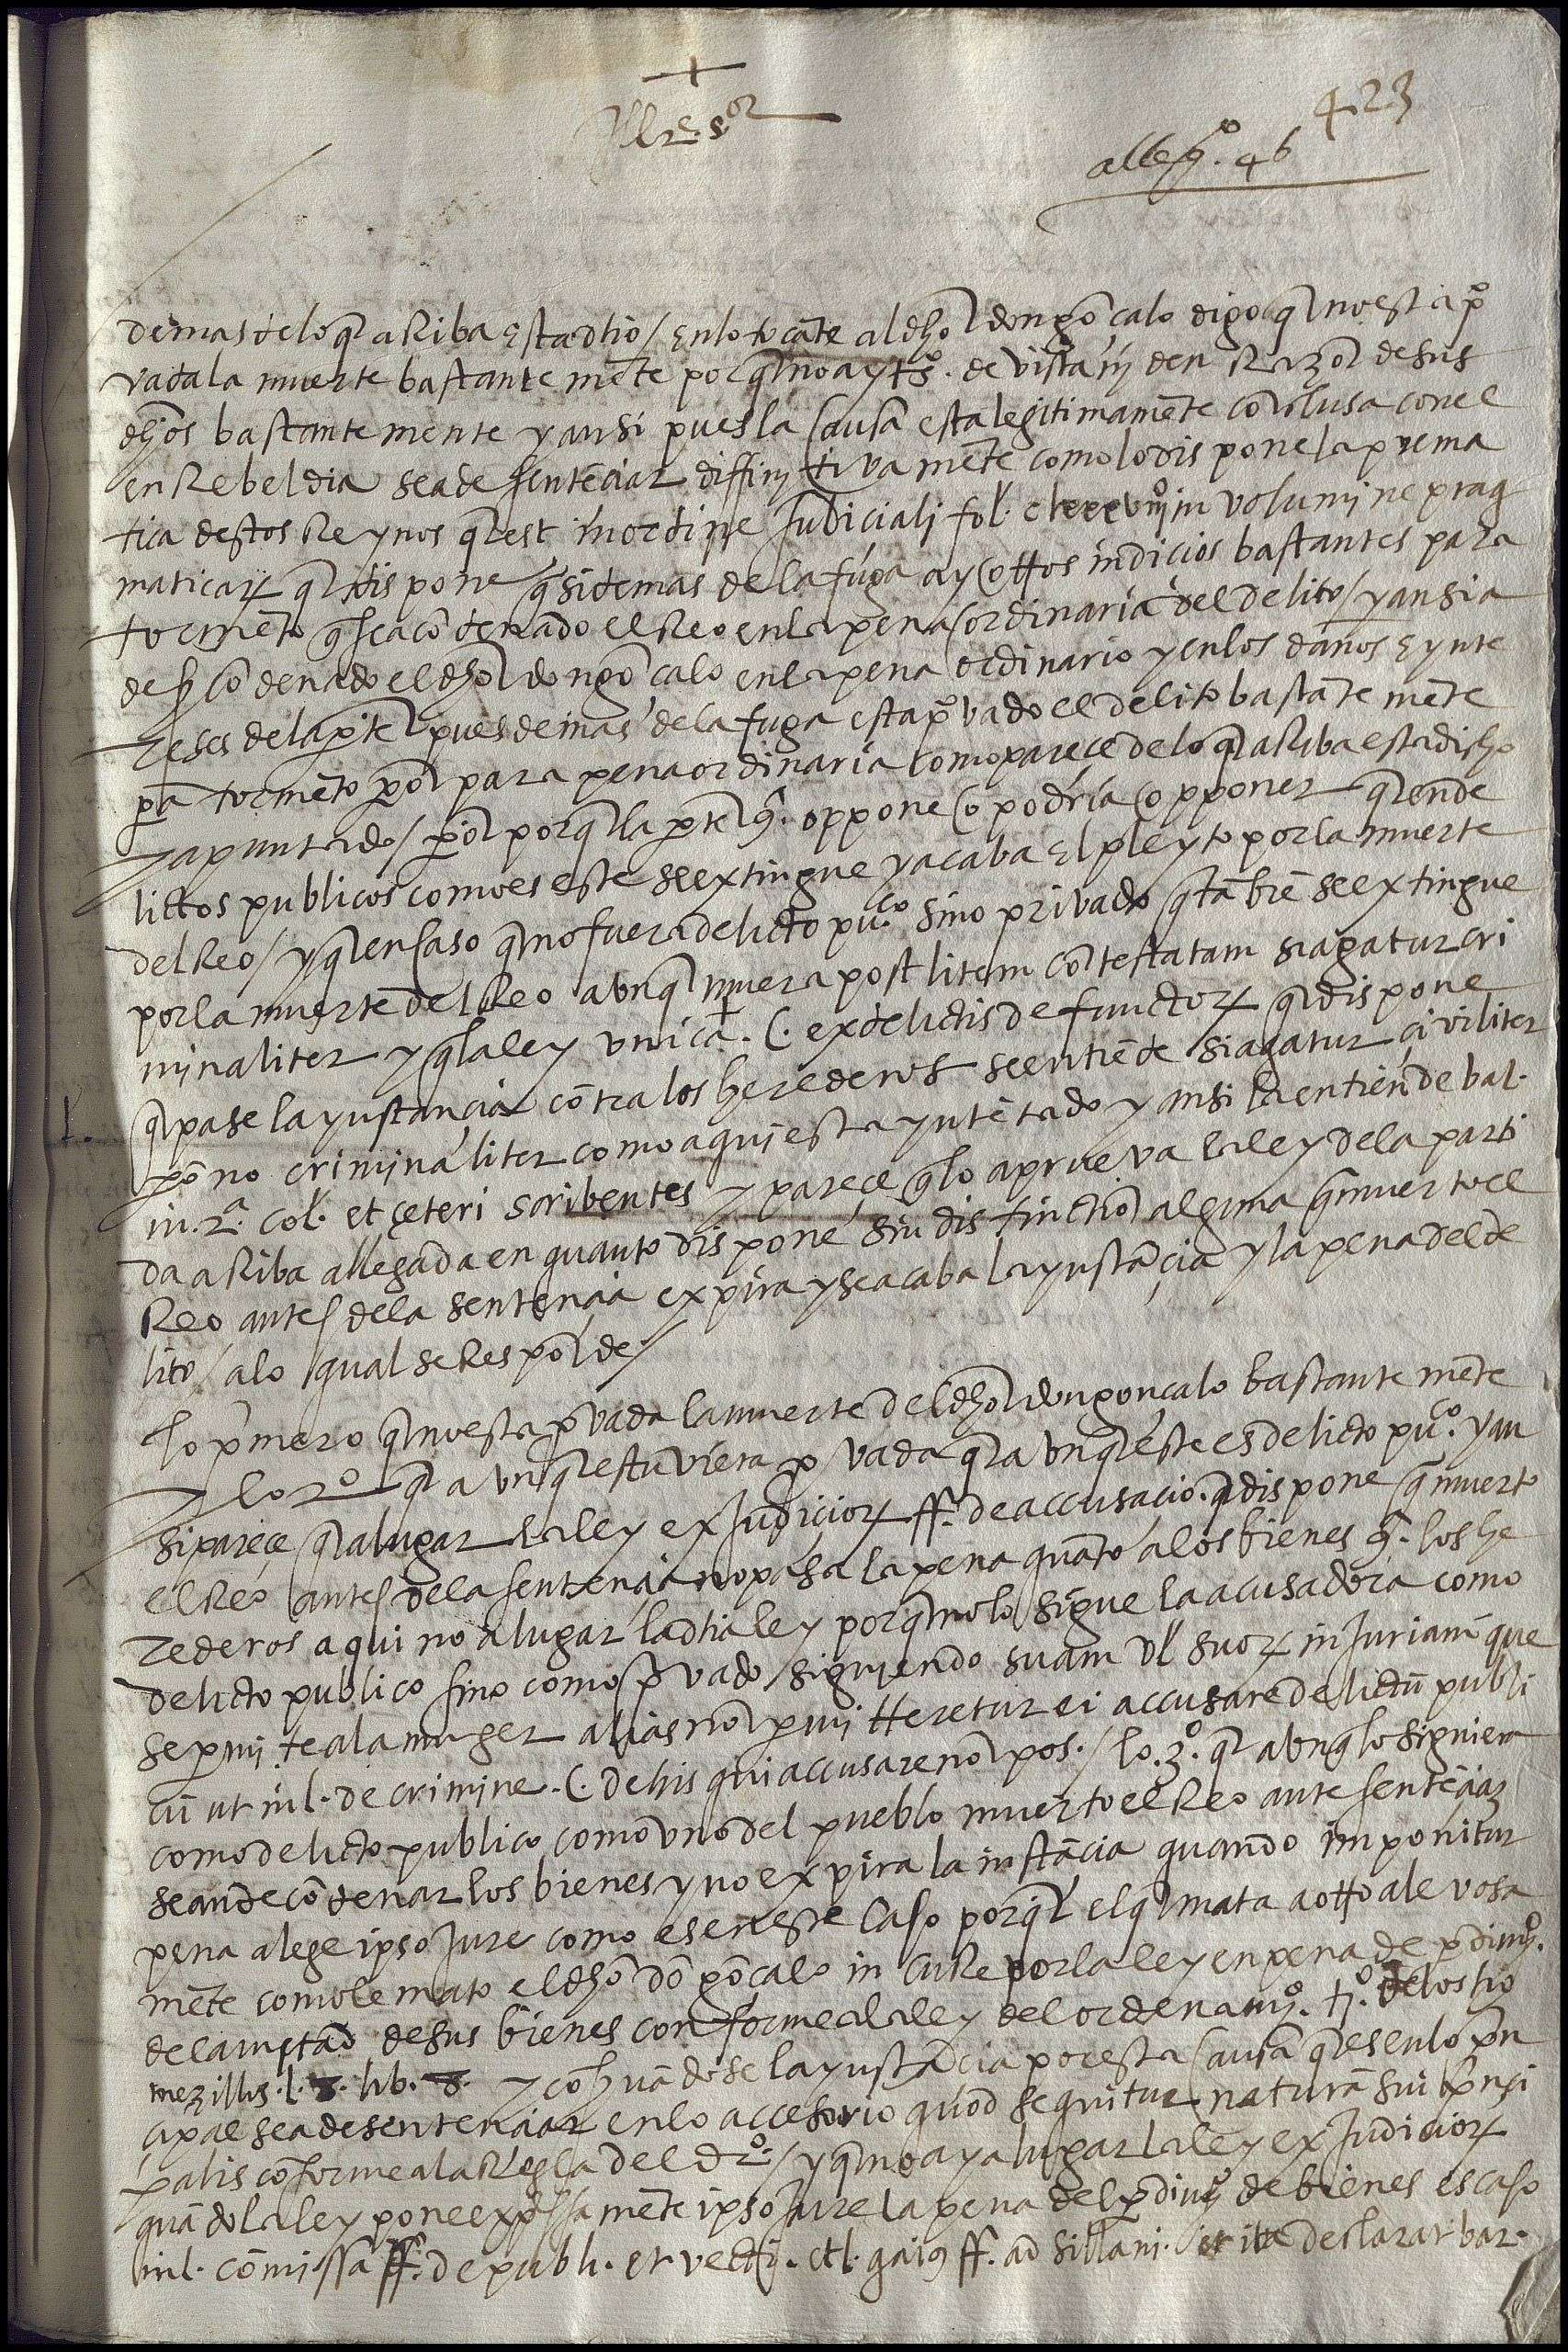 +
Illre sor
423
allegº. 46
demas de lo q̃ arriba esta dho / en lo tocãte al dho don gõcalo digo q̃ no esta p̃
vada la muerte bastante mẽte porq̃ no ay tsº. de vista nj den Razon de sus
dhos bastantemente y ansi pues la causa esta legitimamẽte conclusa con el
en Rebeldia se a de sentẽciar diffinjtiva mẽte como lo dispone la prema
tica destos Reynos q̃ est in ordine judiciali fol. in volumine prag
maticaȝ q̃ dispone q̃ si demas de la fuga ay ottos indicios bastantes para
tormẽto q̃ sea cõdenado el Reo en la pena ordinaria del delito / y ansi a
de sr̃ cõdenado el dho don gõcalo en la pena ordinario y en los daños E ynte
reses de la pte pues demas de la fuga esta p̃vado el delito bastãte mẽte
pa tormẽto y aun para pena ordinaria como parece de lo q̃ arriba esta dicho
y apuntado / pero porq̃ la pte ȝ. oppone o podria opponer q̃ en de
lictos publicos como es este se extingue y acaba El pleyto por la muerte
del Reo / y q̃ en caso q̃ no fuera delicto puco. sino privado q̃ tãbiẽ se extingue
por la muerte del Reo avnq̃ muera post litem cõtestatam si agatur cri
mjnaliter y q̃ la ley vnica. C. ex delictis defunctoȝ q̃ dispone
q̃ pase la ynstancia cõtra los herederos se entiẽde si agatur civiliter
1.
pero no criminaliter como aqui esta yntẽtado y ansi la entiende bal.
in .2ª. col. et çeteri scribentes y pareçe q̃ lo aprueva la ley de la parti
da arriba allegada en quanto dispone sin distinction alguna q̃ muerto el
Reo antes de la sentençia expira y se acaba la ynstãçia y la pena del de
lito / a lo qual se Responde /
lo p̃mero q̃ no esta p̃vada la muerte del dho don goncalo bastante mẽte
y lo 2º q̃ avnq̃ estuviera p̃vada q̃ avnq̃ este es delicto puco. y an
si parece q̃ a lugar la ley ex judicioȝ ff. de accusacio. q̃ dispone q̃ muerto
el Reo antes de la sentençia no pasa la pena quãto a los bienes ȝ. los he
rederos aqui no a lugar la dha ley porq̃ no lo sigue la acusadora como
delicto publico sino como p̃vado siguiendo suam vl suoȝ injuriam que
se p̃mite a la muger alias non p̃mitteretur ei accusare delictũ publi
cũ ut in l. de crimine. C. de his qui accusare non pos. / lo .3º. q̃ avnq̃ lo siguiera
como delicto publico como vno del pueblo muerto el Reo ante sentẽçiaȝ
se an de cõdenar los bienes y no expira la instãcia quando imponitur
pena a lege ipso jure como es en este caso porq̃ el q̃ mata a otto alevosa
mẽte como le mato el dho dõ gõcalo incurre por la ley en pena de p̃dimjº.
de la mitad de sus bienes conforme a la ley del ordenamjº. tiº. de los ho
mezillos. l. 8. lib. 8. y cõservãdose la ynstãcia por esta causa q̃ es en lo p̃n
cipal se a de sentençiar en lo accesorio quod sequitur naturã sui p̃nçi
palis cõforme a la Regla del drº. / y q̃ no aya lugar la ley ex judicioȝ
quãdo la ley pone expressa mẽte ipso jure la pena del p̃dimjº de bienes es caso
in l. cõmissa ff. de publi. et vecti. et l. gaius ff. ad sillani. et ita declarat bar.